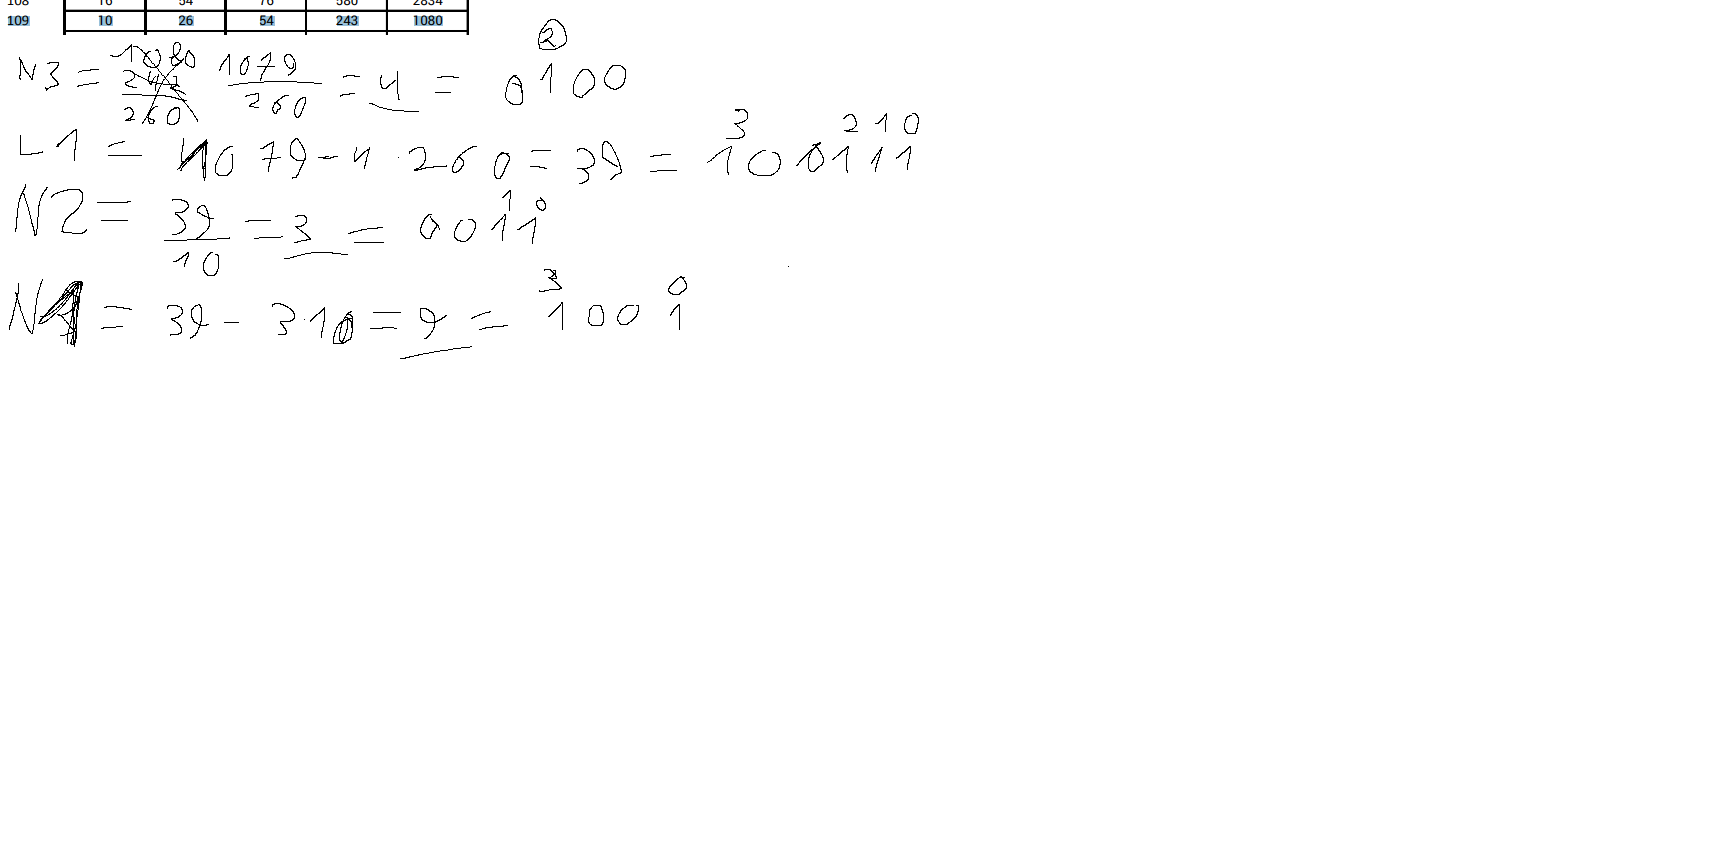 108 16 54 76 580 2834
109 10 26 54 243 1080
2
N3 = 1079 / 260 = 4 = 0100
3 2 1 0
L1 = 1079 - 4 · 260 = 39 = 100111
1 0
N2 = 39 / 10 = 3 = 0011
3 0
N1 = 39 - 3·10 = 9 = 1001